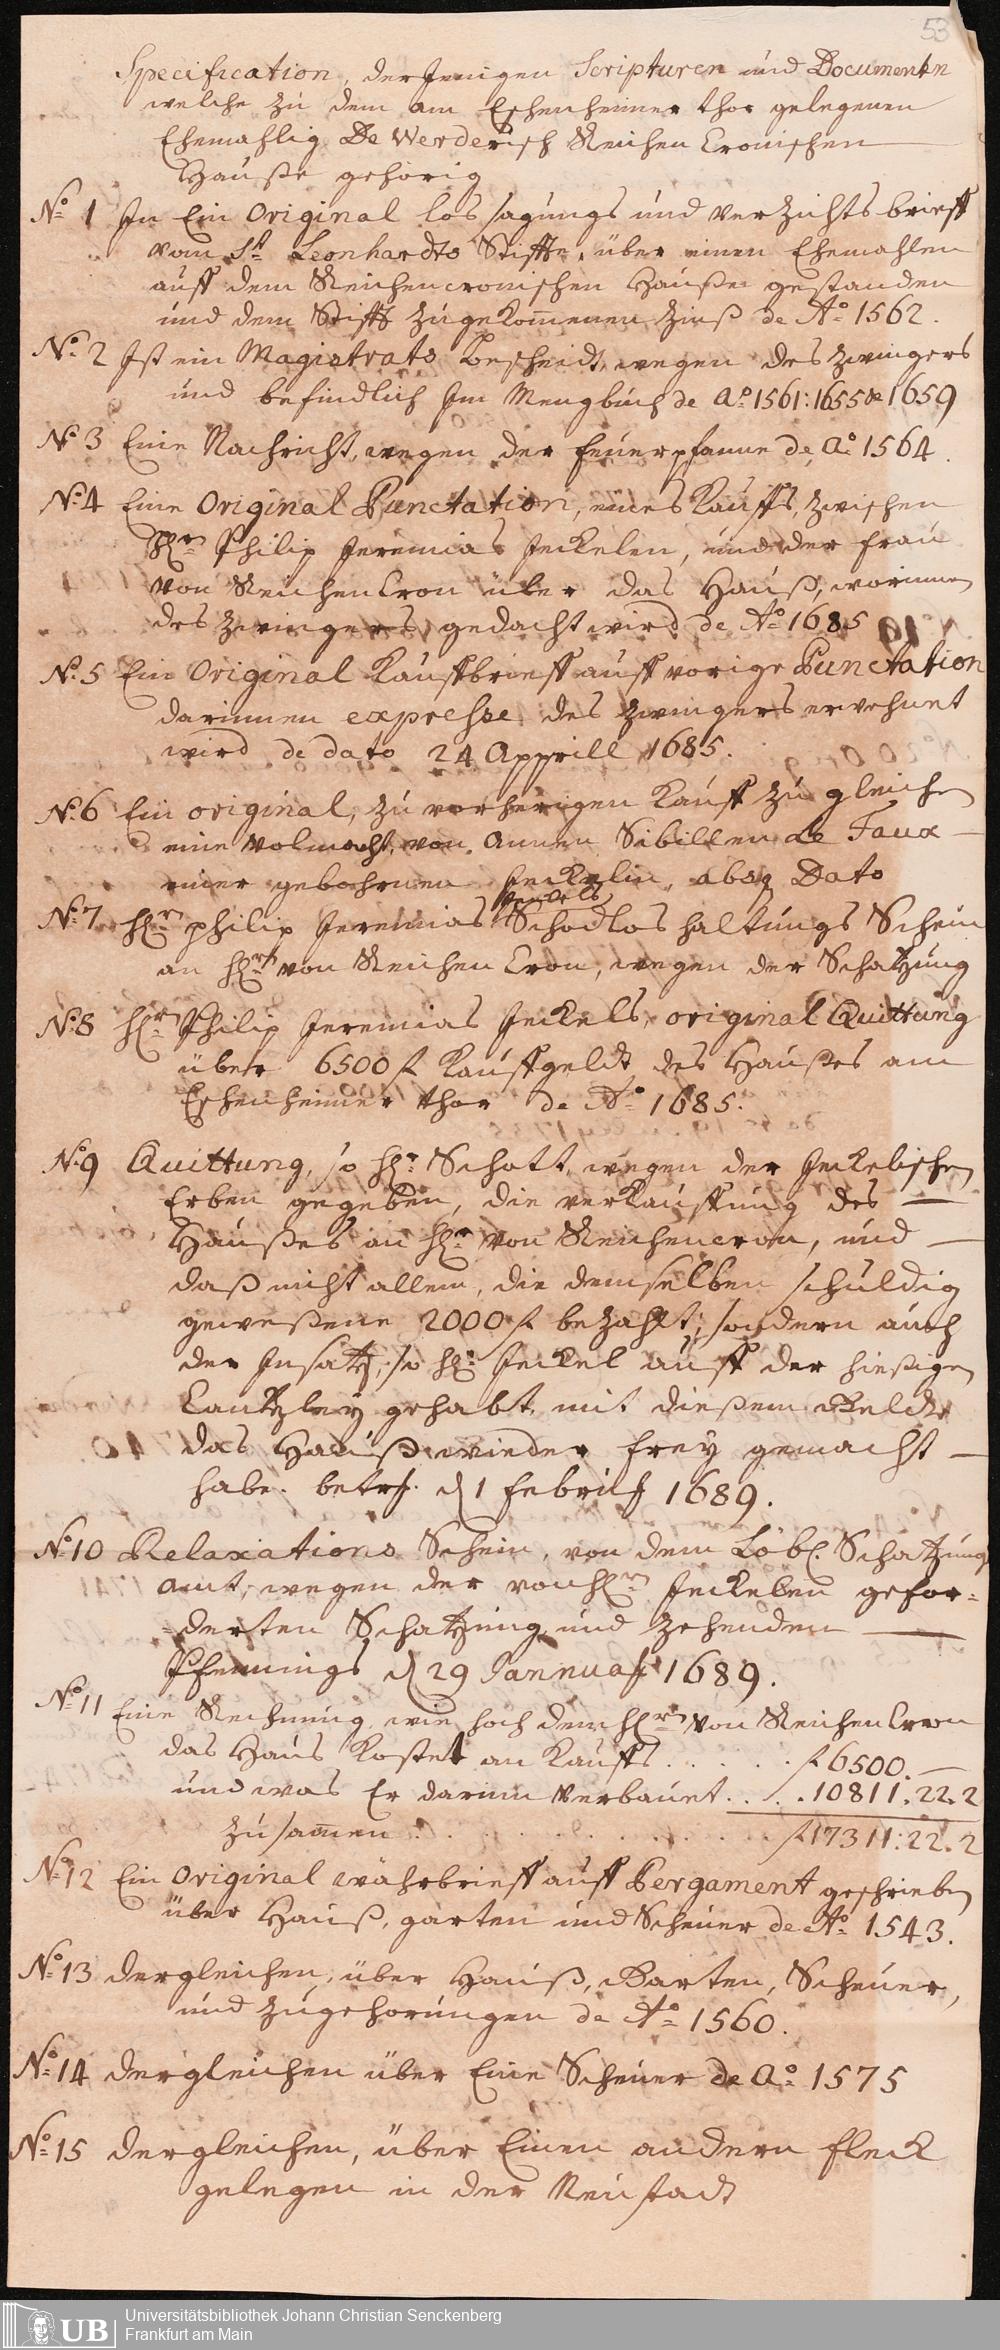 53
Specification, derJenigen Scripturen und Documentn
welche zu dem am Eschenheimer thor gelegenen
Ehemahlig De Werderisch Reichen Cronischen
Hauße gehörig
No. 1 Jn Ein Original los sagungs und verzichts brieff
vom St. Leonhardts Stifft, über einen Ehemahlen
auff dem Reichencronischen Hauße gestanden
und dem Stifft zugekom̅enen Zinß de Ao. 1562.
No. 2 Jst ein Magistrats bescheidt, wegen des zwingers
und befindlich Jm Mengbuch de ao. 1561: 1655 & 1659
No. 3 Eine Nachricht, wegen der feuerpfanne de ao. 1564.
No. 4 Eine Original Punctation, eines Kauffs, zwischen
Hrn Philip Jeremias Jeckelen, und der frau
von Reichen Cron über das Hauß, worinnen
des zwingers gedacht wird de Ao. 1685
No. 5 Ein Original Kauffbrieff auff vorige Punctation
darinnen expresse des zwingers erwehnet
wird de dato 24 Apprill 1685.
No. 6 Ein original, zu vorherigen Kauff zu gleichen
eine volmacht, von Annen Sibillen de Faux
einer gebohrnen Jeckelin, absq Dato
No. 7 Hrn philip Jeremias Jeckels Schodlos haltungs Schein
an Hrn von Reichen Cron, wegen der Schatzung
No. 8 Hrn Philip Jeremias Jeckels, original Quittung
über 6500 f Kauffgeldt des Haußes am
Eschenheimer thor de Ao. 1685.
No. 9 Quittung, so Hr. Schott, wegen der Jeckelischen
Erben gegeben, die verkauffung des
Haußes an Hr. von Reichencron, und
daß nicht allein, die demselben schuldig
geweßene 2000 f bezahlt, sondern auch
der Jnsatz, so Hr. Jeckel auff der hiesigen
Cantzley gehabt mit dießem Gelde
das Hauß wieder frey gemacht
habe. d 1 febril 1689.
No. 10 Relaxations Schein, von dem Löbl. Schatzung
amt, wegen der von Hrn Jeckelen gefor=
=derten Schatzung und zehenden
Pfennings d 29 Jannuar 1689.
No. 11 Eine Rechnung wie hoch dem Hrn von Reichen Cron
das Haus Kostet an Kauffs . . . . . f 6500. —
und was Er darinn verbauet . . . 10811. 22. 2
zusam̅en . . . . . . . f 17311: 22. 2
No. 12 Ein Original währbrieff auff Pergament geschrieben
über Hauß, garten und Scheuer de Ao. 1543.
No. 13 dergleichen, über Hauß, Garten, Scheuer,
und zugehorungen de Ao. 1560.
No. 14 dergleichen über Eine Scheuer de Ao. 1575
No. 15 dergleichen, über Einen andern fleck
gelegen in der Neustadt
UB
Universitätsbibliothek Johann Christian Senckenberg
Frankfurt am Main